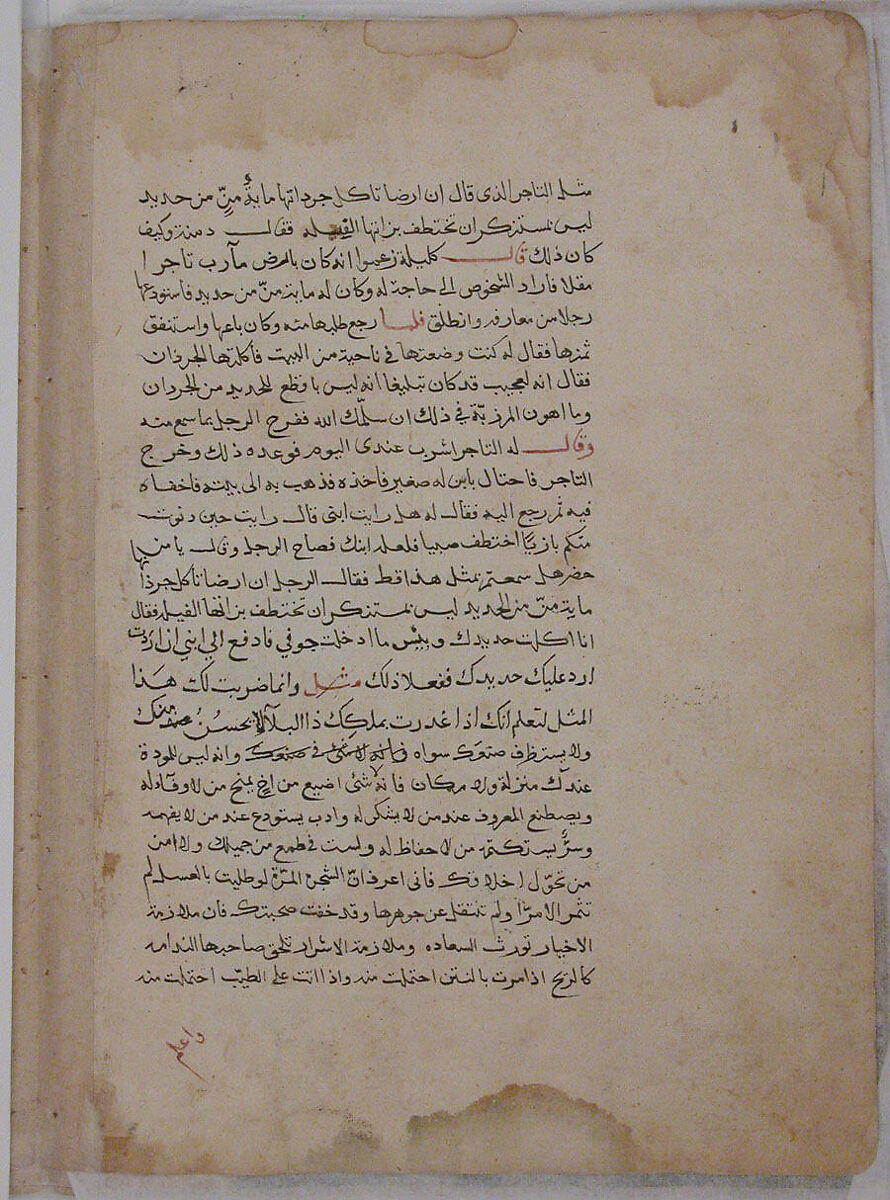 مثل التاجر الذى قال ان ارضا تاكل جرذانها مايةُ منٍّ من حديد
ليس بمستنكر ان تختطف بزاتها الفيله فقال دمنة وكيف
كان ذلك قال كليلة زعموا انه كان بالارض مآرب تاجرا
مقلا فاراد الشخوص الى حاجة له وكان له ماية منّ من حديد فاستودعها
رجلا من معارفه وانطلق فلما رجع طلبها منه وكان باعها واستنفق
ثمنها فقال له كنت وضعتها فى ناحية من البيت فأكلتها الجرذان
فقال انه لعجيب قد كان تبليغا انه ليس باقطع للحديد من الجردان
وما اهون المرزيّة فى ذلك ان سلّمك الله ففرح الرجل بما سمع منه
وقال له التاجر اشرب عندى اليوم فوعده ذلك وخرج
التاجر فاحتال بابن له صغير فاخذه فذهب به الى بيته فاخفاه
فيه ثم رجع اليه فقال له هل رايت ابنى قال رايت حين دنوت
منكم بازيّا اختطف صبيا فلعله ابنك فصاح الرجل وقال يا من
حضر هل سمعتم بمثل هذا قط فقال الرجل ان ارضا تأكل جرذانها
ماية منّ من الحديد ليس بمستنكر ان تختطف بزاتها الفيله فقال
انا اكلت حديدك وبئس ما ادخلت جوفي فادفع الي ابني ان اردت
ارد عليك حديدك ففعلا ذلك مثل وانما ضربت لك هذا
المثل لتعلم انك اذا غدرت بملكك ذا البلآ الحسن عندك
ولا يستظرف صنعك سواه فانه لا شى فى صنعك وانه ليس للمودة
عندك منزلة ولا مكان فانه شئ اضيع من اخٍ يمنح من لا وفآء له
ويصطنع المعروف عند من لا يشكر له وادب يستودع عند من لا يفهمه
وسرٌّ يستكتمه من لا حفاظ له ولست فى طمع من جميلك ولا امن
من تحوّل اخلاقك فانى اعرف انّ الشجرة المرّة لو طليت بالعسل لم
تثمر الا مرّا ولم تنتقل عن جوهرها وقد خفت صحبتك فان ملازمة
الاخيار تورث السعاده وملازمة الاشرار تلحق صاحبها الندامه
كالريح اذا مرت بالنتن احتملت منه واذا اتت على الطيّب احتملت منه
واعلم